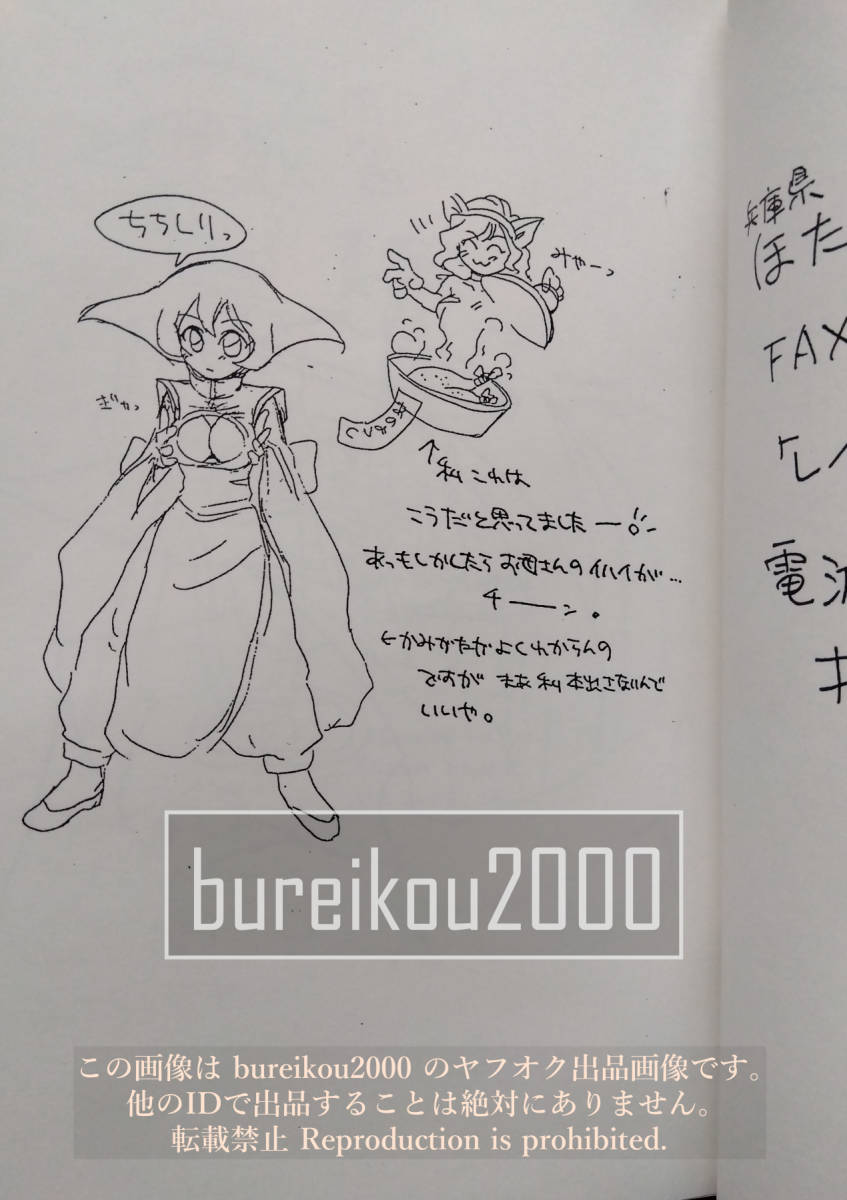 ちちしりっ
みゃーっ
ぎゅっ
きのこ
↑私 これは
こうだと思ってましたー
あっもしかしたら お母さんのイハイが…
チーン。
←かみがたがよくわからんの
ですが まあ 私 本出さないんで
いいや。
兵庫県
ほた
FAX
電波
bureikou2000
この画像は bureikou2000 のヤフオク出品画像です。
他のIDで出品することは絶対にありません。
転載禁止 Reproduction is prohibited.